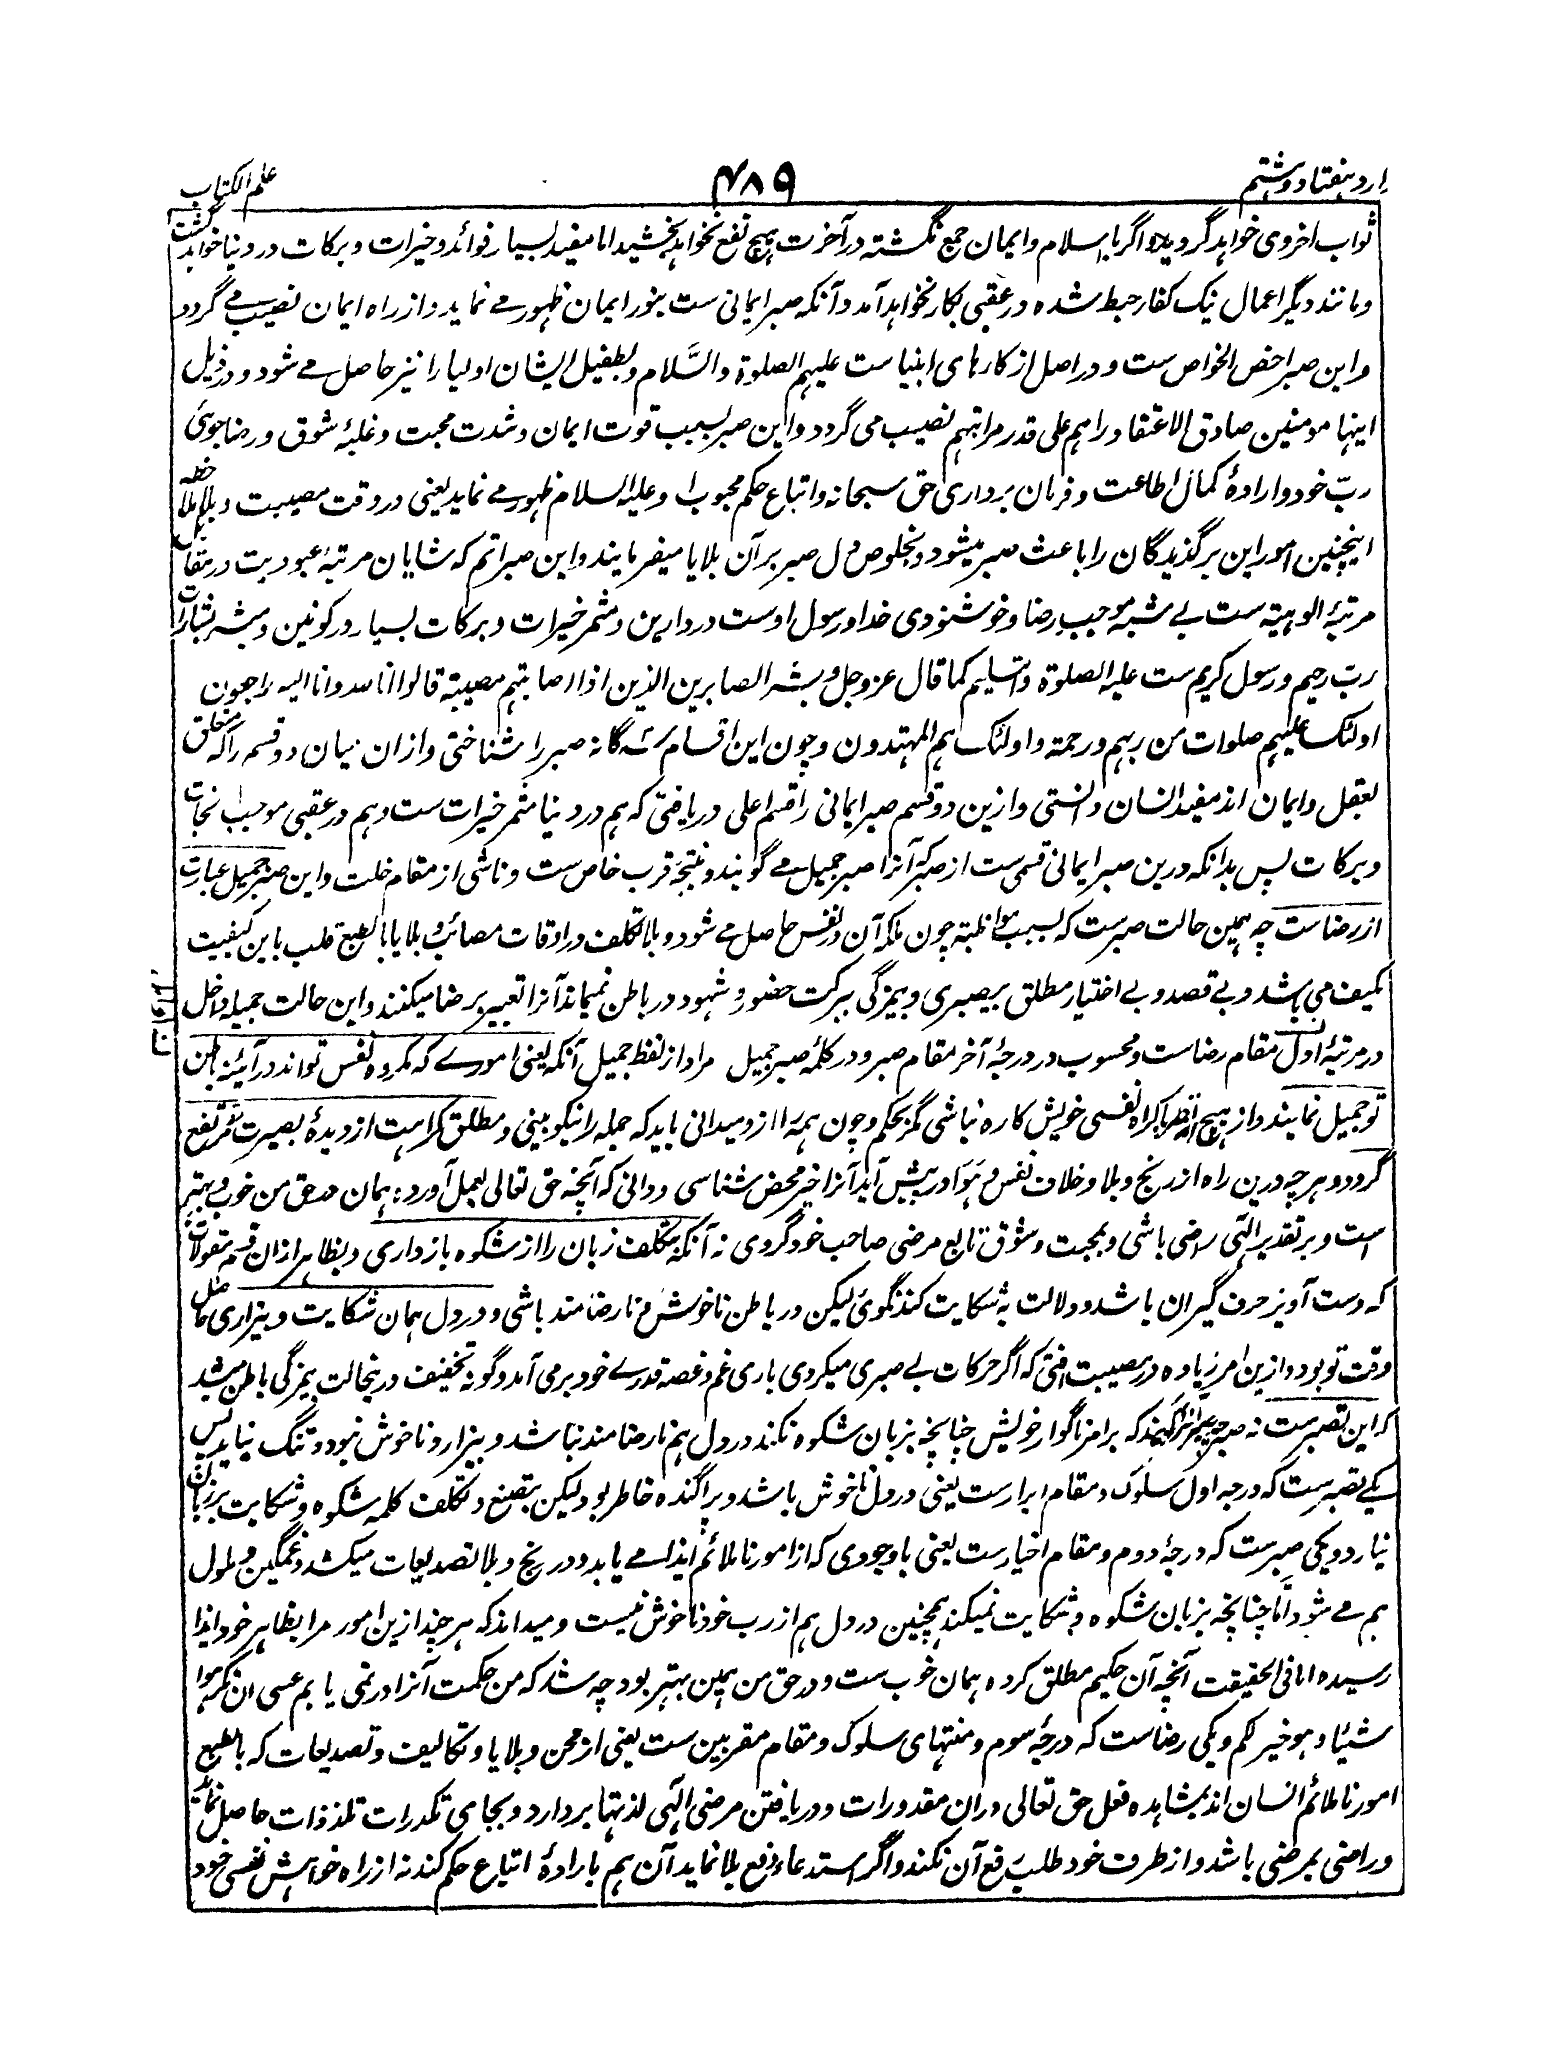 وارد هفتاد و هشتم
۴۸۹
علم الکتاب
ثواب اخروی خواهد گردیده و اگر با اسلام و ایمان جمع نگشته در آخرت هیچ نفع نخواهد بخشید اما مفید بسیار فوائد و خیرات و برکات در دنیا خواهد گشت
و مانند دیگر اعمال نیک کفار حبط شده در عقبی بکار نخواهد آمد و آنکه صبر ایمانی ست بنور ایمان ظهور مے نماید و از راه ایمان نصیب مے گردد
و این صبر اخص الخواص ست و در اصل از کارهای انبیا ست علیهم الصلوة والسَّلام و بطفیل ایشان اولیا را نیز حاصل مے شود و در ذیل
اینها مومنین صادق الاعتقاد را هم علی قدر مراتبهم نصیب می گردد و این صبر بسبب قوت ایمان و شدت محبت و غلبۂ شوق و رضاجوئی
ربّ خود و ارادۂ کمال اطاعت و فرمان برداری حق سبحانه و اتباع حکم محبوب او علیه السلام ظهور مے نماید یعنی در وقت مصیبت و بلا ملاحظه
اینچنین امور این برگذیدگان را باعث صبر میشود و بخلوص دل صبر بر آن بلایا میفرمایند و این صبر اتم که شایان مرتبۂ عبودیت در مقابل
مرتبۂ الوهیة ست بے شبهه موجب رضا و خوشنودی خدا و رسول اوست در دارین و مثمر خیرات و برکات بسیار در کونین و مبشر بشارات
ربّ رحیم و رسول کریم ست علیه الصلوة والتسلیم کما قال عزوجل و بشر الصابرین الذین اذا اصابتهم مصیبة قالوا انا لله وانا الیه راجعون
اولئک علیهم صلوات من ربهم ورحمة واولئک هم المهتدون و چون این اقسام سه گانه صبر را شناختی و ازان میان دو قسم را که متعلق
بعقل و ایمان اند مفید انسان دانستی و ازین دو قسم صبر ایمانی را قسم اعلی دریافتی که هم در دنیا مثمر خیرات ست و هم در عقبی موجب نجات
و برکات پس بدانکه درین صبر ایمانی قسمی ست از صبر که آنرا صبر جمیل مے گویند و نتیجۂ قرب خاص ست و ناشی از مقام خلت و این صبر جمیل عبارت
از رضا ست چه همین حالت صبر ست که بسبب مواظبة چون ملکه آن در نفس حاصل مے شود و بلا تکلف در اوقات مصائب و بلایا بالطبع قلب باین کیفیت
مکیف می باشد و بے قصد و بے اختیار مطلق بیصبری و بیمزگی ببرکت حضور و شهود در باطن نمیماند آنرا تعبیر برضا میکنند و این حالت جمیله داخل
در مرتبۂ اول مقام رضاست و محسوب در درجۂ آخر مقام صبر و در کلمۂ صبر جمیل مراد از لفظ جمیل آنکه یعنی امورے که مکروه نفس تواند در آئینۂ باطن
تو جمیل نمایند و از هیچ امر باکراه نفسی خویش کاره نباشی مگر بحکم و چون همه را از و میدانی باید که جمله را نیکو بینی و مطلق کراهت از دیدۂ بصیرت تو مرتفع
گردد و هر چه درین راه از رنج و بلا و خلاف نفس و هوا در پیش آید آنرا خیر محض شناسی و دانی که آنچه حق تعالی بعمل آورد همان در حق من خوب و بهتر
است و بر تقدیر الٓهی راضی باشی و بمحبت و شوق تابع مرضی صاحب خود گردی نه آنکه بتکلف زبان را از شکوه باز داری و بظاهر ازان قسم مقولات
که دست آویز حرف گیران باشد و دلالت به شکایت کند نگوئی لیکن در باطن ناخوش و نارضامند باشی و در دل همان شکایت و بیزاری حاصل
وقت تو بود و ازین امر زیاده در مصیبت افتی که اگر حرکات بے صبری میکردی باری غم و غصه قدرے خود بر می آمد و گونه تخفیف در ینحالت بیمزگی باطن میشد
که این تصبر ست نه صبر که بر امر ناگوار خویش چنانچه بزبان شکوه نکند در دل هم نارضامند نباشد و بیزار و ناخوش نبود و تنگ نیاید پس
یکے تصبر ست که درجه اول سلوک و مقام ابرار ست یعنی در دل ناخوش باشد و پراگنده خاطر بود لیکن بتصنع و تکلف کلمه شکوه و شکایت بر زبان
نیارد و یکی صبر ست که درجۂ دوم و مقام اخیار ست یعنی باوجودی که از امور ناملائم ایذا مے یابد و در رنج و بلا تصدیعات میکشد و غمگین و ملول
هم مے شود اما چنانچه بزبان شکوه و شکایت نمیکند همچنین در دل هم از رب خود ناخوش نیست و میداند که هر چند ازین امور مرا بظاهر خود ایذا
رسیده اما فی الحقیقت آنچه آن حکیم مطلق کرده همان خوب ست و در حق من همین بهتر بود چه شد که من حکمت آنرا در نمی یابم عسی ان تکرهوا
شیئا و هو خیر لکم و یکی رضاست که درجۂ سوم و منتهای سلوک و مقام مقربین ست یعنی از محن و بلایا و تکالیف و تصدیعات که بالطبع
امور ناملائم انسان اند بمشاهده فعل حق تعالی دران مقدورات و دریافتن مرضی الٓهی لذتها بردارد و بجای تکدرات تلذذات حاصل نماید
و راضی بمرضی باشد و از طرف خود طلب رفع آن نکند و اگر استدعاء دفع بلا نماید آن هم بارادۂ اتباع حکم کند نه از راه خواهش نفسی خود